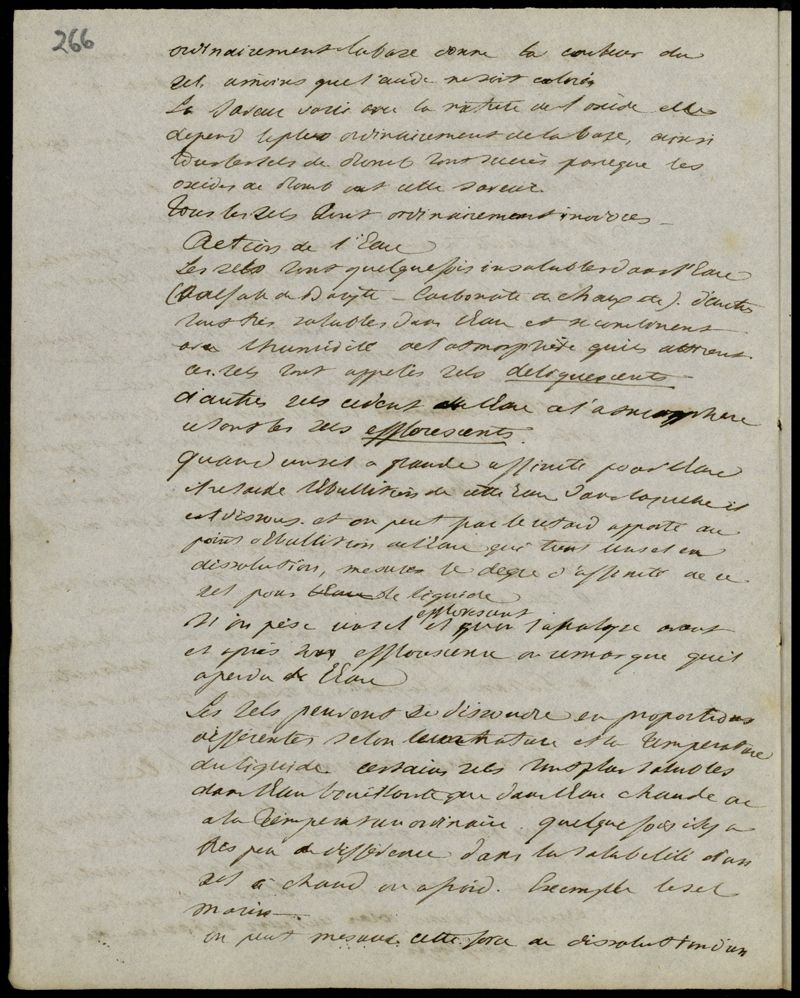 266
ordinairement la base donne la couleur du
sel, amoins que l'acide ne soit coloré
La Saveur varie avec la nature de l'oxide elle
depend le plus ordinairement de la base, ainsi
tous les sels de Plomb sont sucrés parceque les
oxides de Plomb ont cette saveur.
Tous les sels sont ordinairement inodores —
Action de l'Eau
Les sels sont quelquefois insolubles dans l'Eau
(Sulfate de Baryte — Carbonate de Chaux &c). d'autres
sont très solubles dans l'Eau et se combinent
avec l'humidité de l'atmosphère qu'ils attirent.
ces sels sont appelés sels deliquescents
d'autres sels cedent de l'Eau a l'atmosphere
ce sont les sels efflorescents.
Quand un sel a grande affinité pour l'Eau
il retarde l'Ebullition de cette Eau dans laquelle il
est dissous. et on peut par le retard apporté au
point d'Ebullition de l'Eau qui tient un sel en
dissolution, mesurer le degré d'affinité de ce
sel pour l'Eau le liquide
efflorescent
Si on pèse un sel et qu'on l'analyse avant
et après son efflorescence on remarque qu'il
a perdu de l'Eau
Les sels peuvent se dissoudre en proportions
différentes selon leur nature et la Température
du liquide. certains sels sont plus solubles
dans l'Eau bouillante que dans l'Eau chaude ou
a la Température ordinaire. quelquefois il y a
très peu de différence dans la solubilité d'un
sel à chaud ou a froid. Exemple le sel
marin —
on peut mesurer cette force de dissolution d'un